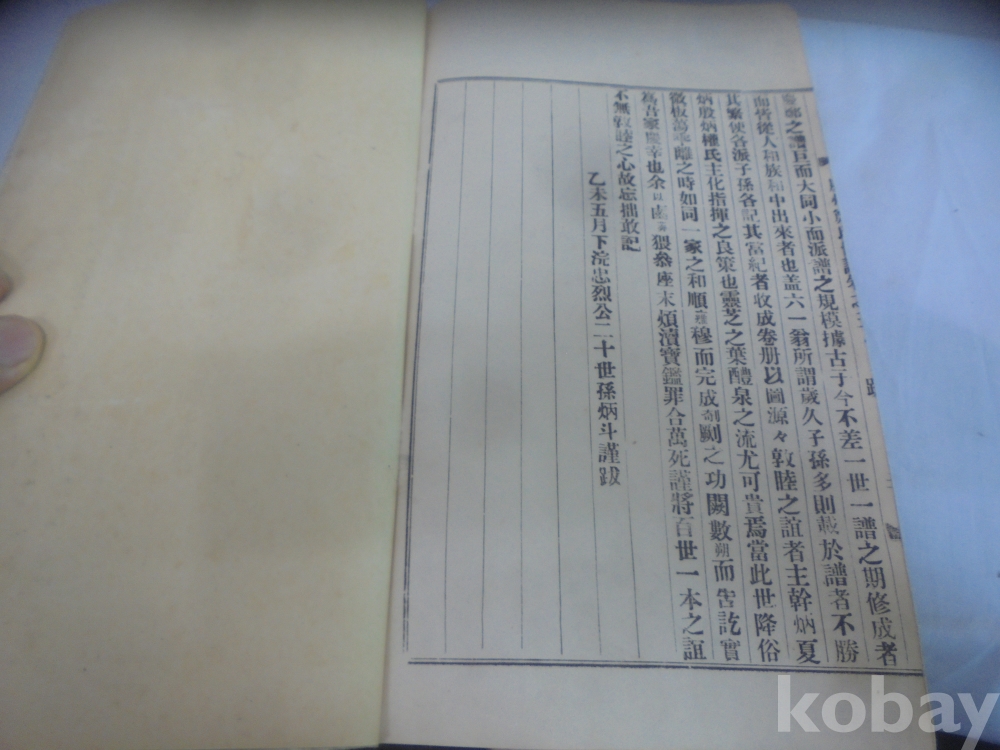 之譜巨而大同小而派譜之規模據古于今不差一世一譜之期修成者
而皆從人和族和中出來者也盖六一翁所謂歲久子孫多則載於譜者不勝
其繁使各派子孫各記其當紀者收成卷册以圖源々敦睦之誼者主幹炳夏
炳殷炳權氏主化指揮之良策也靈芝之葉醴泉之流尤可貴焉當此世降俗
微板蕩乖離之時如同一家之和順穆而完成剞劂之功闕數朔而告訖實
爲吾家慶幸也余以猥叅座末煩瀆寶鑑罪合萬死謹將百世一本之誼
不無敦睦之心故忘拙敢記
乙未五月下浣忠烈公二十世孫炳斗謹跋
跋
kobay